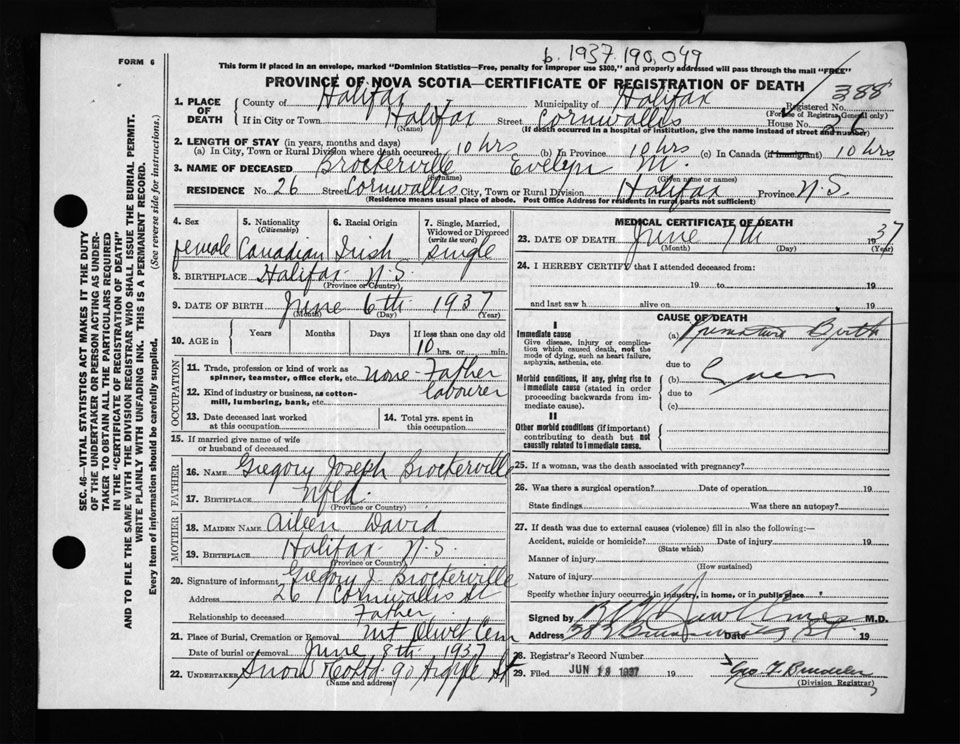 b. 1937.190,049
FORM 6
This form if placed in an envelope, marked "Dominion Statistics—Free, penalty for improper use $300," and properly addressed will pass through the mail "FREE"
PROVINCE OF NOVA SCOTIA—CERTIFICATE OF REGISTRATION OF DEATH
1. PLACE OF DEATH County of Halifax Municipality of Halifax Registered No. 388
(For use of Registrar General only)
If in City or Town Halifax Street Cornwallis House No. 26
(Name) (If death occurred in a hospital or institution, give the name instead of street and number)
2. LENGTH OF STAY (in years, months and days)
(a) In City, Town or Rural Division where death occurred 10 hrs (b) In Province 10 hrs (c) In Canada (if immigrant) 10 hrs
3. NAME OF DECEASED Brockerville Evelyn M.
(Surname) (Given name or names)
RESIDENCE No. 26 Street Cornwallis City, Town or Rural Division Halifax Province N.S.
(Residence means usual place of abode. Post Office Address for residents in rural parts not sufficient)
4. Sex female
5. Nationality (Citizenship) Canadian
6. Racial Origin Irish
7. Single, Married, Widowed or Divorced (write the word) single
8. BIRTHPLACE Halifax N.S.
(Province or Country)
9. DATE OF BIRTH June 6th 1937
(Month) (Day) (Year)
10. AGE in Years Months Days If less than one day old
10 hrs. or min.
OCCUPATION
11. Trade, profession or kind of work as spinner, teamster, office clerk, etc. none - Father
12. Kind of industry or business, as cotton-mill, lumbering, bank, etc. labourer
13. Date deceased last worked at this occupation
14. Total yrs. spent in this occupation
15. If married give name of wife or husband of deceased
FATHER
16. NAME Gregory Joseph Brockerville
17. BIRTHPLACE Nfld.
(Province or Country)
MOTHER
18. MAIDEN NAME Aileen David
19. BIRTHPLACE Halifax N.S.
(Province or Country)
20. Signature of informant Gregory J. Brockerville
Address 26 Cornwallis St
Relationship to deceased Father
21. Place of Burial, Cremation or Removal Mt Olivet Cem
Date of burial or removal June 8th 1937
22. UNDERTAKER Snow & Co Ltd. 90 Argyle St
(Name and address)
MEDICAL CERTIFICATE OF DEATH
23. DATE OF DEATH June 7th 1937
(Month) (Day) (Year)
24. I HEREBY CERTIFY that I attended deceased from:
19 to 19
and last saw h alive on 19
CAUSE OF DEATH
I
Immediate cause (a) Premature Birth
Give disease, injury or complication which caused death, not the mode of dying, such as heart failure, asphyxia, asthenia, etc.
due to
Morbid conditions, if any, giving rise to immediate cause (stated in order proceeding backwards from immediate cause).
(b)
due to
(c)
II
Other morbid conditions (if important) contributing to death but not causally related to immediate cause.
25. If a woman, was the death associated with pregnancy?
26. Was there a surgical operation? Date of operation 19
State findings Was there an autopsy?
27. If death was due to external causes (violence) fill in also the following:—
Accident, suicide or homicide? Date of injury 19
(State which)
Manner of injury
(How sustained)
Nature of injury
Specify whether injury occurred in industry, in home, or in public place
Signed by M.D.
Address Date 19
28. Registrar's Record Number
29. Filed JUN 18 1937 19
(Division Registrar)
SEC. 46—VITAL STATISTICS ACT MAKES IT THE DUTY
OF THE UNDERTAKER OR PERSON ACTING AS UNDERTAKER TO OBTAIN ALL THE PARTICULARS REQUIRED
IN THE "CERTIFICATE OF REGISTRATION OF DEATH"
AND TO FILE THE SAME WITH THE DIVISION REGISTRAR WHO SHALL ISSUE THE BURIAL PERMIT.
WRITE PLAINLY WITH UNFADING INK. THIS IS A PERMANENT RECORD.
Every item of information should be carefully supplied. (See reverse side for instructions.)